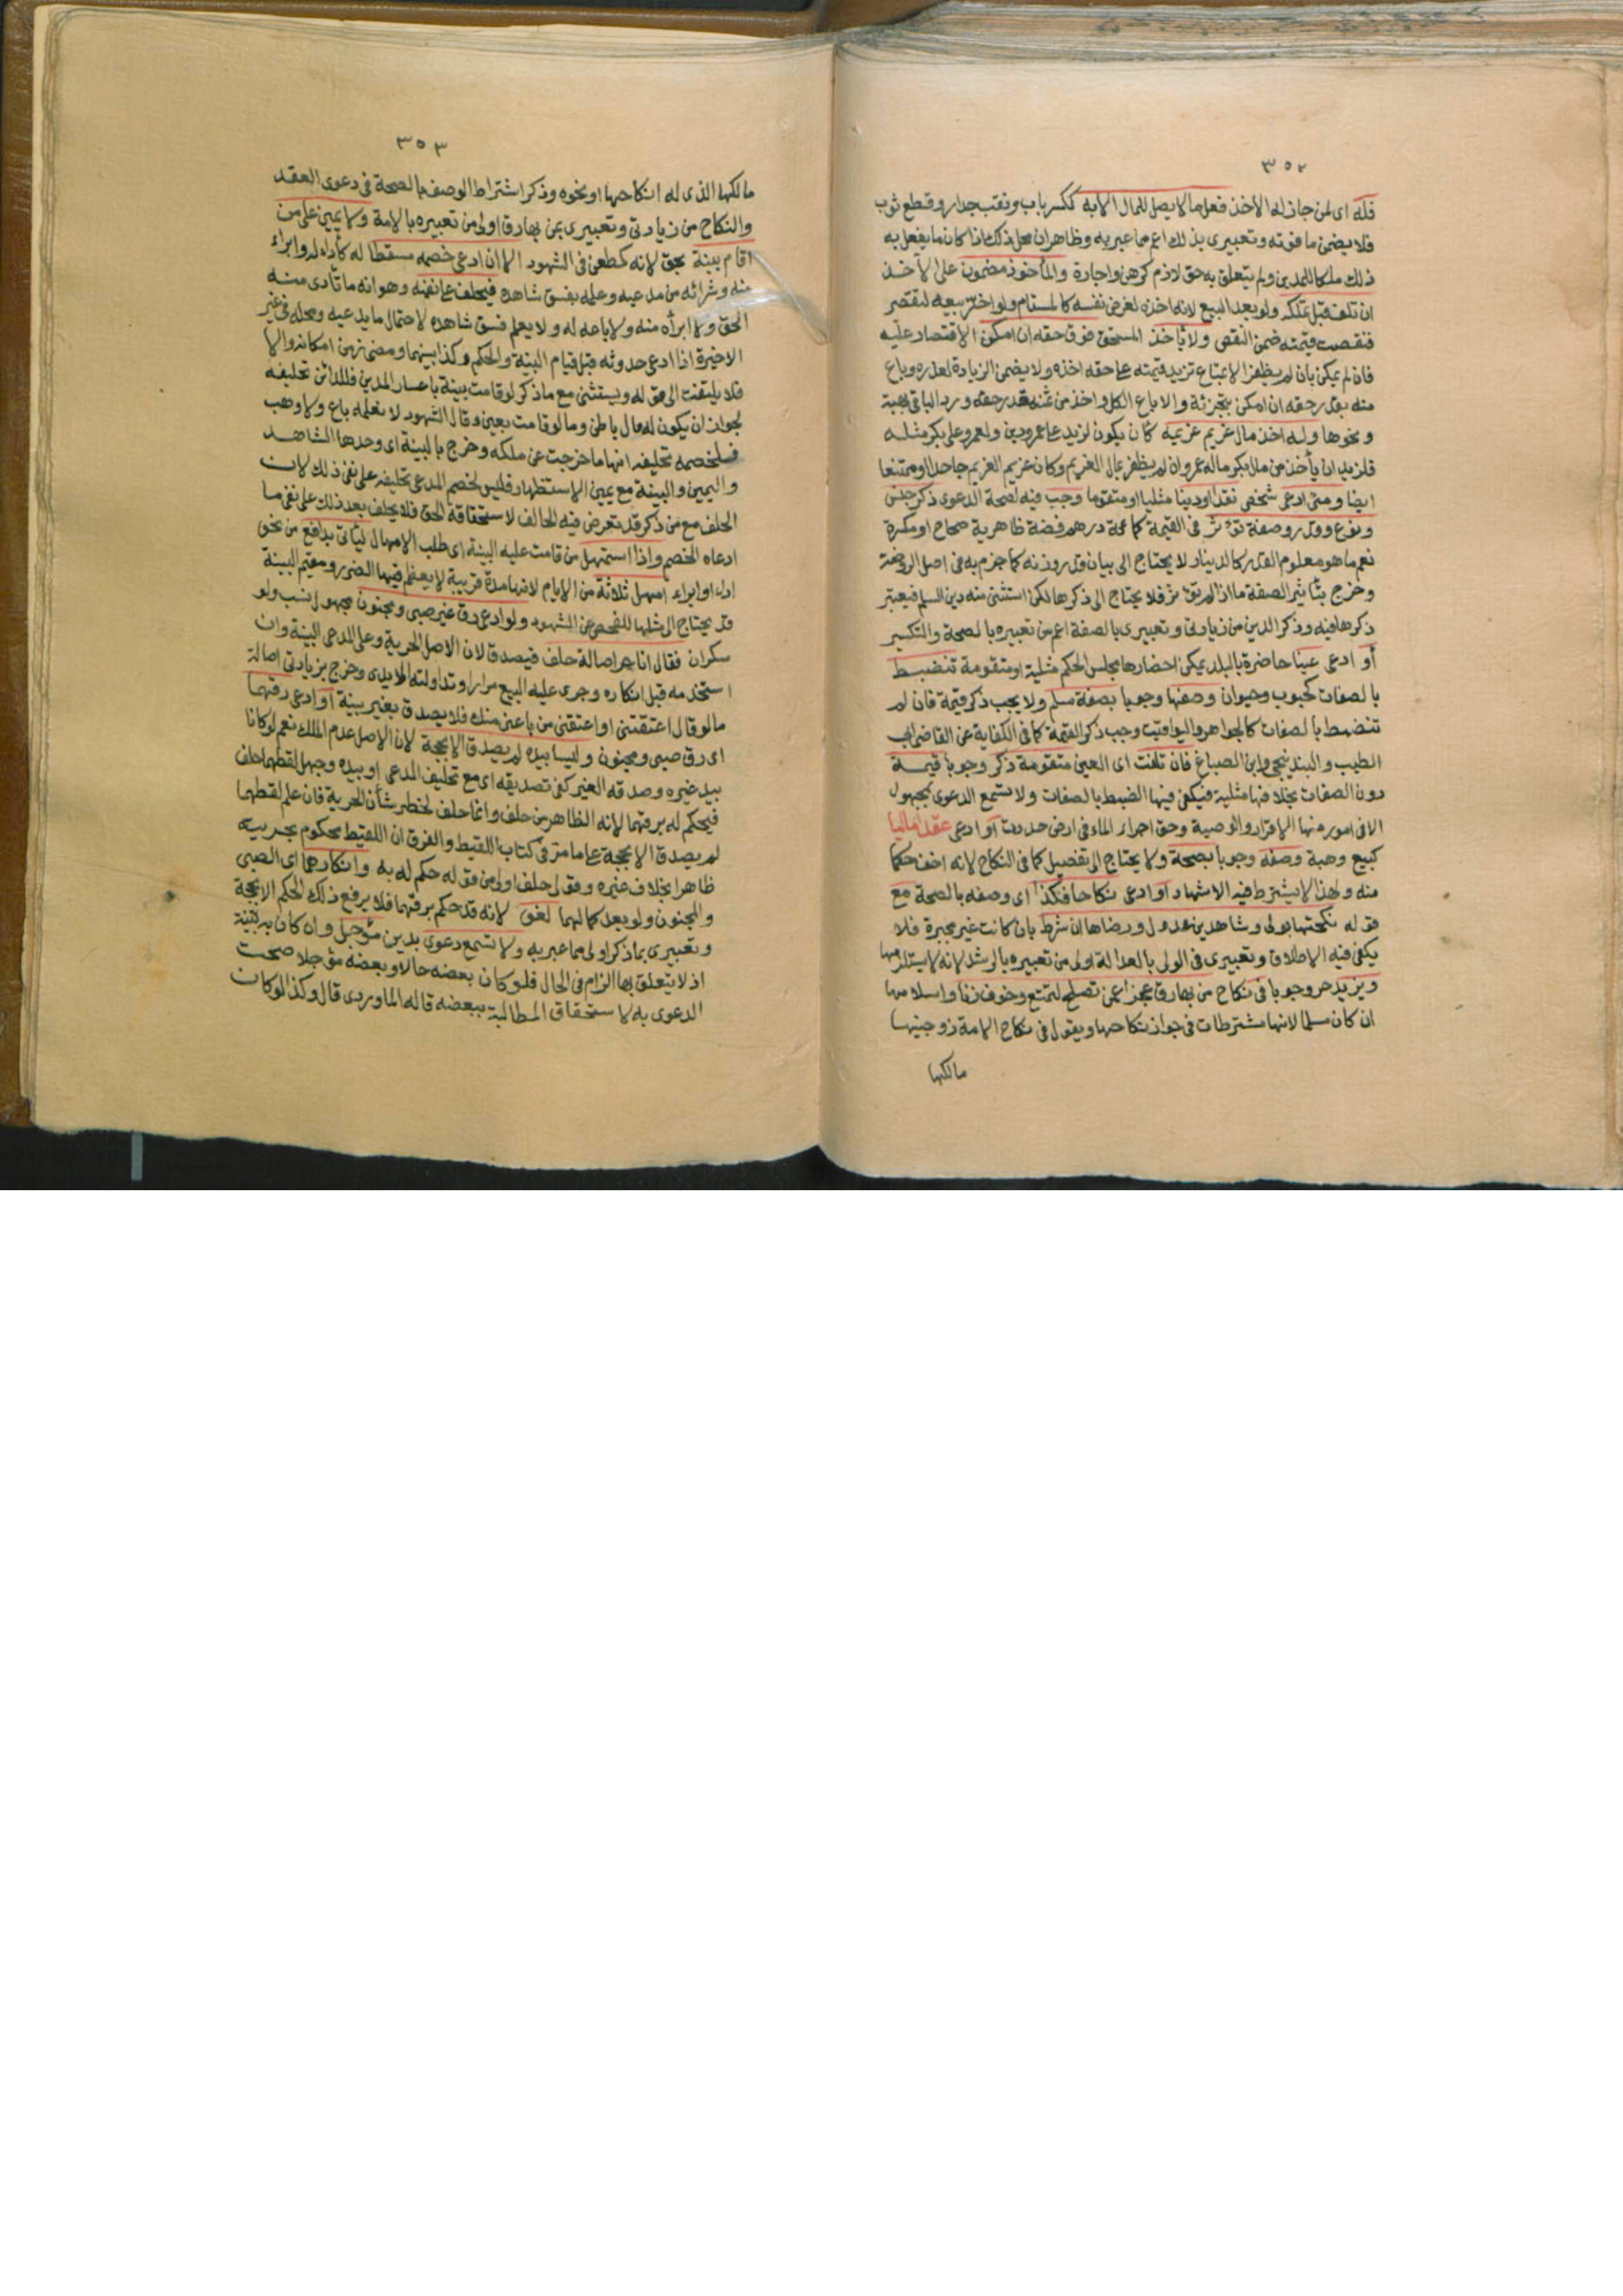 ٣٥٢
فله اى لمن جاز له الاخذ فعل ما لا يصل للمال الا به ككسر باب ونقب جدار وقطع ثوب
فلا يضمن ما فوته وتعبيرى بذلك اعم مما عبر به وظاهر ان محل ذلك اذا كان ما يفعل به
ذلك ملكا للمدين ولم يتعلق به حق لازم كرهن واجارة والمأخوذ مضمون على الآخذ
ان تلف قبل تملكه ولو بعد البيع لانه اخذه لغرض نفسه كالمستام ولو اخر بيعه لتقصير
فنقصت قيمته ضمن النقص ولا يأخذ المستحق فوق حقه ان امكن الاقتصار عليه
فان لم يمكن بان لم يظفر الا بمتاع تزيد قيمته على حقه اخذه ولا يضمن الزيادة لعذره وباع
منه بقدر حقه ان امكن بتجزئة والا باع الكل واخذ من ثمنه قدر حقه ورد الباقى بهبة
ونحوها وله اخذ مال غريم غريمه كأن يكون لزيد على عمرو دين ولعمرو على بكر مثله
فلزيد ان يأخذ من مال بكر ماله على عمرو ان لم يظفر بمال الغريم وكان غريم الغريم جاحدا او ممتنعا
ايضا ومتى ادعى شخص نقدا او دينا مثليا او متقوما وجب فيه لصحة الدعوى ذكر جنس
ونوع وقدر وصفة تؤثر فى القيمة كمائة درهم فضة ظاهرية صحاح او مكسرة
نعم ما هو معلوم القدر كالدينار لا يحتاج الى بيان قدر وزنه كما جزم به فى اصل الروضة
وخرج بتأثير الصفة ما اذا لم تؤثر فلا يحتاج الى ذكرها لكن استثنى منه دين السلم فيعتبر
ذكرها فيه وذكر الدين من زيادتى وتعبيرى بالصفة اعم من تعبيره بالصحة والتكسير
أو ادعى عينا حاضرة بالبلد يمكن احضارها مجلس الحكم مثلية او متقومة تنضبط
بالصفات كحبوب وحيوان وصفها وجوبا بصفة سلم ولا يجب ذكر قيمة فان لم
تنضبط بالصفات كالجواهر واليواقيت وجب ذكر القيمة كما فى الكفاية عن القاضى ابى
الطيب والبندنيجى وابن الصباغ فان تلفت اى العين متقومة ذكر وجوبا قيمة
دون الصفات بخلافها مثلية فيكفى فيها الضبط بالصفات ولا تسمع الدعوى بمجهول
الا فى امور منها الاقرار والوصية وحق اجراء الماء فى ارض حددت أو ادعى عقدا ماليا
كبيع وهبة وصفه وجوبا بصحة ولا يحتاج الى تفصيل كما فى النكاح لانه اخف حكما
منه ولهذا لا يشترط فيه الاشهاد أو ادعى نكاحا فكذا اى وصفه بالصحة مع
قوله نكحتها بولى وشاهدين عدول ورضاها ان شرط بان كانت غير مجبرة فلا
يكفى فيه الاطلاق وتعبيرى فى الولى بالعدالة اولى من تعبيره بالرشد لانه لا يستلزمها
ويزيد حر وجوبا فى نكاح من بها رق عجزا عمن تصلح لتمتع وخوف زنا واسلامها
ان كان مسلما لانها مشترطات فى جواز نكاحها ويقول فى نكاح الامة زوجنيها
مالكها
٣٥٣
مالكها الذى له انكاحها او نحوه وذكر اشتراط الوصف بالصحة فى دعوى العقد
والنكاح من زيادتى وتعبيرى بمن بها رق اولى من تعبيره بالامة ولا يمين على من
اقام بينة بحق لانه كطعن فى الشهود الا ان ادعى خصمه مسقطا له كأداء له وابراء
منه وشرائه من مدعيه وعلمه بفسق شاهده فيحلف على نفيه وهو انه ما تأدى منه
الحق ولا ابرأه منه ولا باعه له ولا يعلم فسق شاهده لاحتمال ما يدعيه ومحله فى غير
الاخيرة اذا ادعى حدوثه قبل قيام البينة والحكم وكذا بينهما ومضى زمن امكانه والا
فلا يلتفت الى قوله ويستثنى مع ما ذكر لو قامت بينة باعسار المدين فللدائن تحليفه
لجواز ان يكون له مال باطن وما لو قامت بعين وقال الشهود لا نعلمه باع ولا وهب
فلخصمه تحليفه انها ما خرجت عن ملكه وخرج بالبينة اى وحدها الشاهد
واليمين والبينة مع يمين الاستظهار فليس لخصم المدعى تحليفه على نفى ذلك لان
الحلف مع من ذكر قد تعرض فيه الحالف لاستحقاقه الحق فلا يحلف بعد ذلك على نفى ما
ادعاه الخصم واذا استمهل من قامت عليه البينة اى طلب الامهال ليأتى بدافع من نحو
اداء او ابراء امهل ثلاثة من الايام لانها مدة قريبة لا يعظم فيها الضرر ومقيم البينة
قد يحتاج الى مثلها للفحص عن الشهود ولو ادعى رق غير صبى ومجنون مجهول نسب ولو
سكران فقال انا حر اصالة حلف فيصدق لان الاصل الحرية وعلى المدعى البينة وان
استخدمه قبل انكاره وجرى عليه البيع مرارا وتداولته الايدى وخرج بزيادتى اصالة
ما لو قال اعتقتنى او اعتقنى من باعنى منك فلا يصدق بغير بينة أو ادعى رقهما
اى رق صبى ومجنون وليسا بيده لم يصدق الا بحجة لان الاصل عدم الملك نعم لو كانا
بيد غيره وصدقه الغير كفى تصديقه اى مع تحليف المدعى او بيده وجهل لقطهما حلف
فيحكم له برقهما لانه الظاهر من حلف وانما حلف لخطر شأن الحرية فان علم لقطهما
لم يصدق الا بحجة على ما مر فى كتاب اللقيط والفرق ان اللقيط محكوم بحريته
ظاهرا بخلاف غيره وقولى حلف اولى من قوله حكم له به وانكارهما اى الصبى
والمجنون ولو بعد كمالهما لغو لانه قد حكم برقهما فلا يرفع ذلك الحكم الا بحجة
وتعبيرى بما ذكر اولى مما عبر به ولا تسمع دعوى بدين مؤجل وان كان به بينة
اذ لا يتعلق بها الزام فى الحال فلو كان بعضه حالا وبعضه مؤجلا صحت
الدعوى به لاستحقاق المطالبة ببعضه قاله الماوردى قال وكذا لو كان